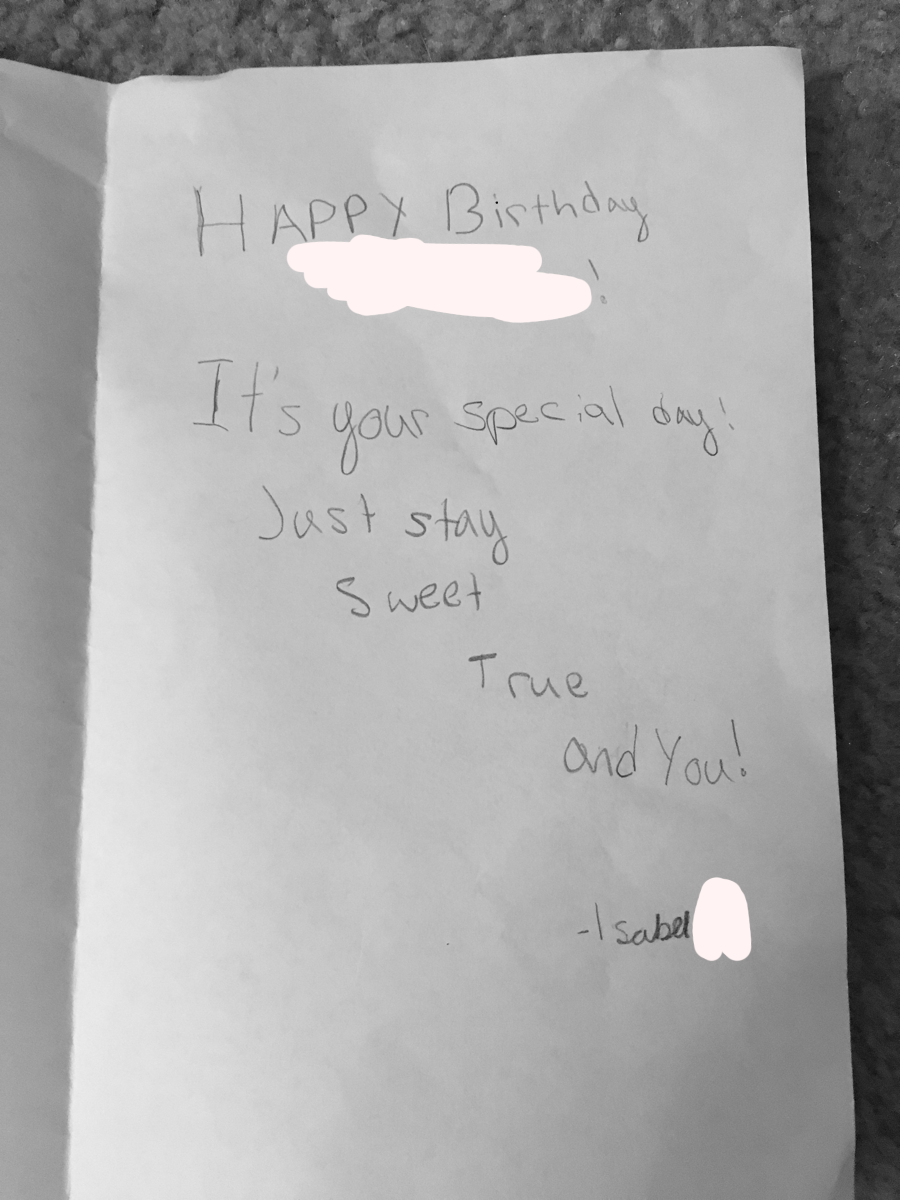 HAPPY Birthday
!
It's your special day!
Just stay
Sweet
True
and You!
-Isabel